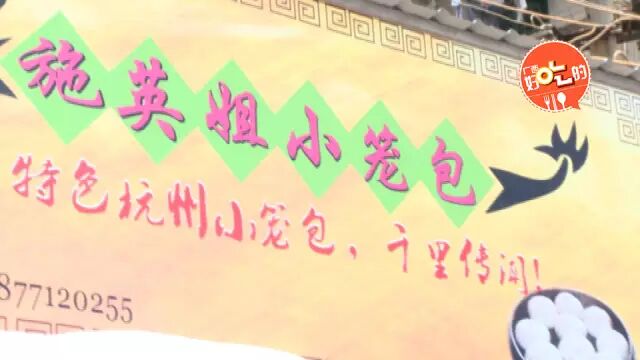 施英姐小笼包
特色杭州小笼包、千里传闻!
877120255
好吃的